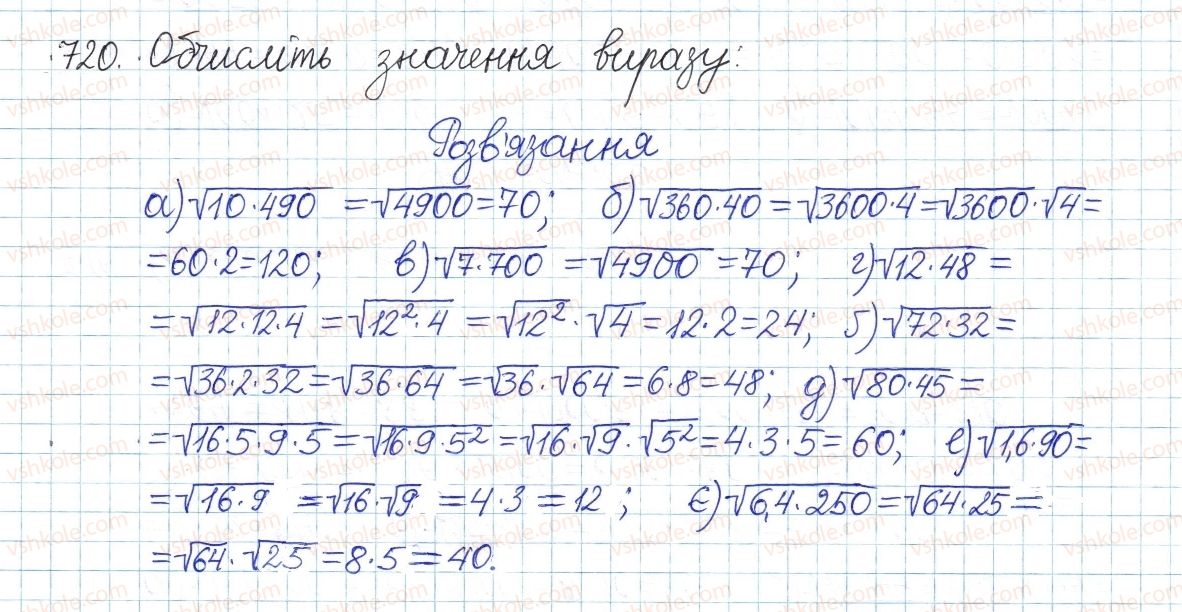 720. Обчисліть значення виразу:
Розв'язання
а) √10·490 = √4900 = 70; б) √360·40 = √3600·4 = √3600·√4 =
= 60·2 = 120; в) √7·700 = √4900 = 70; г) √12·48 =
= √12·12·4 = √12²·4 = √12²·√4 = 12·2 = 24; ґ) √72·32 =
= √36·2·32 = √36·64 = √36·√64 = 6·8 = 48; д) √80·45 =
= √16·5·9·5 = √16·9·5² = √16·√9·√5² = 4·3·5 = 60; е) √1,6·90 =
= √16·9 = √16·√9 = 4·3 = 12; є) √6,4·250 = √64·25 =
= √64·√25 = 8·5 = 40.
vshkole.com